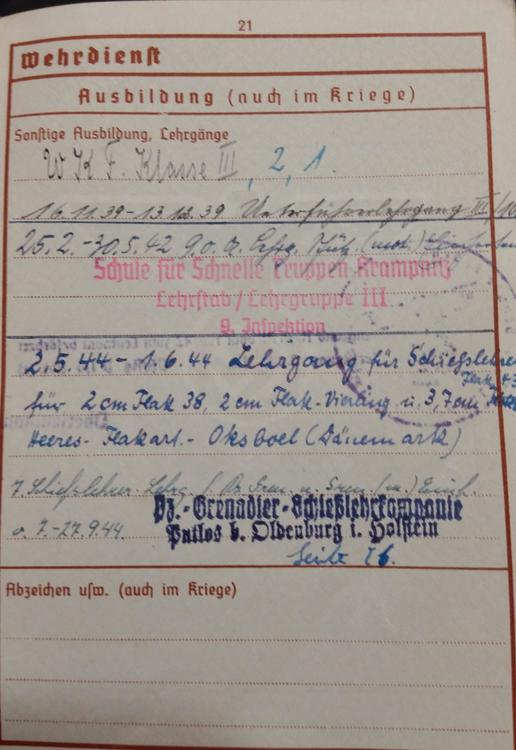 21
Wehrdienst
Ausbildung (auch im Kriege)
Sonstige Ausbildung, Lehrgänge
W K F. Klasse III, 2, 1.
16.11.39-13.12.39 Unterführerlehrgang III/
25.2.-30.5.42 9.
Schule für Schnelle Truppen Krampnitz
Lehrstab/Lehrgruppe III
9. Inspektion
2.5.44-1.6.44 Lehrgang für Schießlehrer
für 2cm Flak 38, 2cm Flak-Vierling u. 3,7cm Flak 43
Heeres-Flakart.- Oksboel (Dänemark)
7. Schießlehrer-Lehrg.
v. 7.-27.9.44
Pz.-Grenadier-Schießlehrkompanie
Putlos b. Oldenburg i. Holstein
Seite 26.
Abzeichen usw. (auch im Kriege)